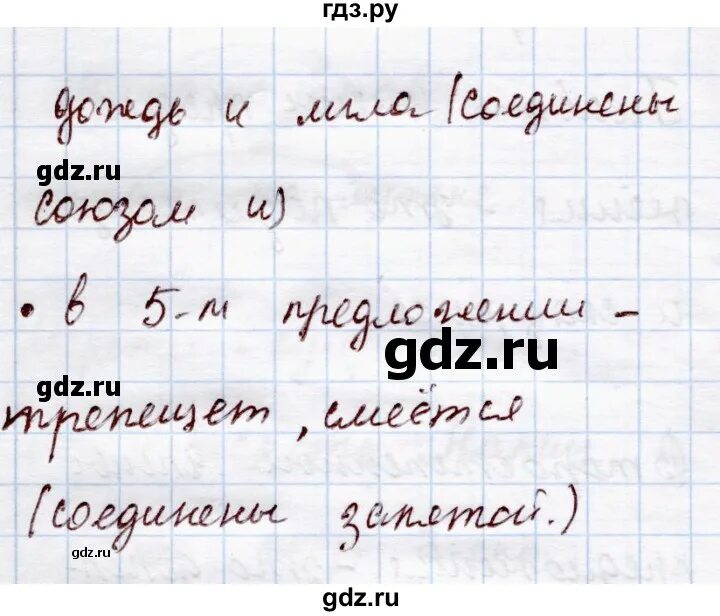 гдз.ру
дождь и мгла (соединены
gdz.ru
союзом и)
• в 5-м предложении –
gdz.ru
gdz.ru
трепещет, смеётся
(соединены запятой.)
gdz.ru
gdz.ru